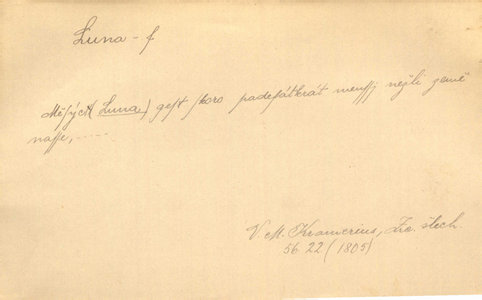 Luna - f
Měsýc (Luna) gest skoro padesátkrát menssj nežli země
nasse, .....
V. M. Kramerius, Zr. šlech.
56. 22 (1805)